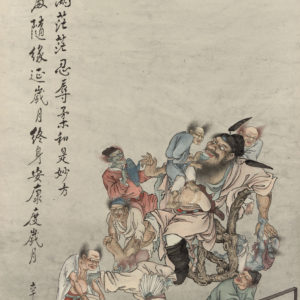 茫茫忍辱柔和是妙方
處隨緣延歲月終身安康度歲月